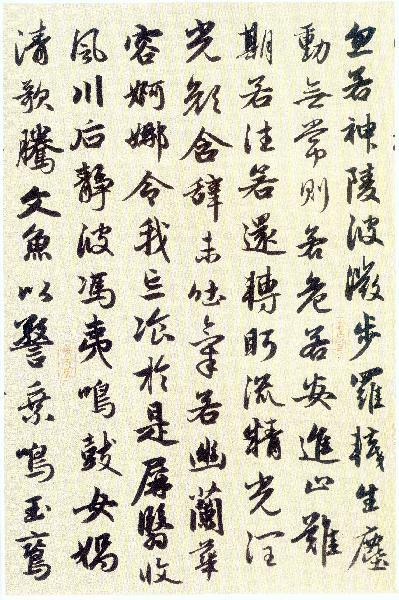 忽若神陵波微步羅襪生塵
動無常則若危若安進止難
期若往若還轉眄流精光潤
光顏含辭未吐氣若幽蘭華
容婀娜令我忘飡於是屏翳收
風川后靜波馮夷鳴鼓女媧
清歌騰文魚以警乘鳴玉鸞